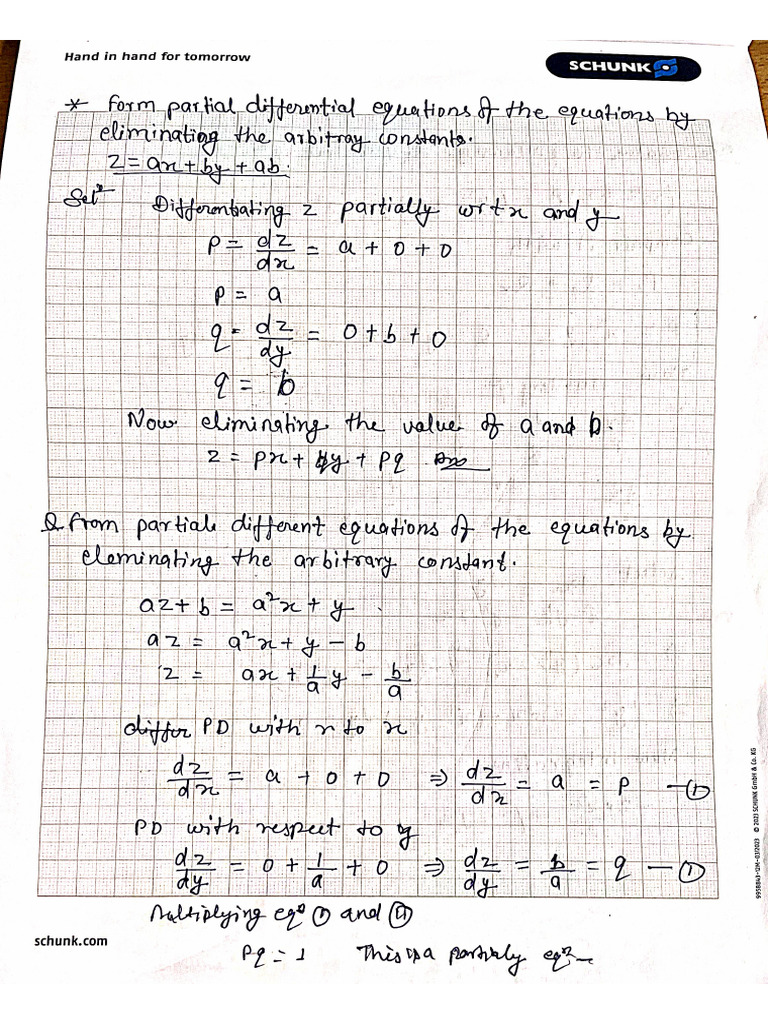 Hand in hand for tomorrow
SCHUNK
* Form partial differential equations of the equations by
eliminating the arbitray constants.
z = ax + by + ab.
Solⁿ Differentiating z partially w r t x and y
p = dz/dx = a + 0 + 0
p = a
q = dz/dy = 0 + b + 0
q = b
Now eliminating the value of a and b.
z = px + qy + pq Ans
Q from partial different equations of the equations by
eleminating the arbitrary constant.
az + b = a²x + y
az = a²x + y - b
z = ax + 1/a y - b/a
differ PD with r to x
dz/dx = a + 0 + 0 ⇒ dz/dx = a = p —①
PD with respect to y
dz/dy = 0 + 1/a + 0 ⇒ dz/dy = 1/a = q —①
Multiplying eqⁿ ① and ⑪
pq = 1 This is a partialy eqⁿ
schunk.com
9958843-12M-03/2023 © 2023 SCHUNK GmbH & Co. KG